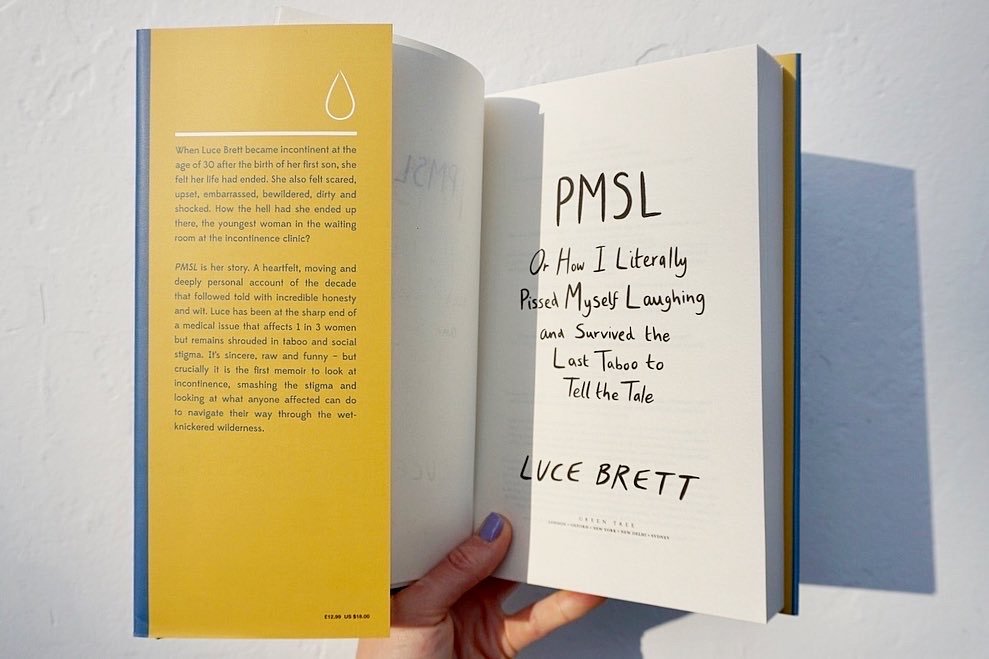 When Luce Brett became incontinent at the
age of 30 after the birth of her first son, she
felt her life had ended. She also felt scared,
upset, embarrassed, bewildered, dirty and
shocked. How the hell had she ended up
there, the youngest woman in the waiting
room at the incontinence clinic?
PMSL is her story. A heartfelt, moving and
deeply personal account of the decade
that followed told with incredible honesty
and wit. Luce has been at the sharp end of
a medical issue that affects 1 in 3 women
but remains shrouded in taboo and social
stigma. It's sincere, raw and funny – but
crucially it is the first memoir to look at
incontinence, smashing the stigma and
looking at what anyone affected can do
to navigate their way through the wet-
knickered wilderness.
£12.99 US $18.00
PMSL
Or How I Literally
Pissed Myself Laughing
and Survived the
Last Taboo to
Tell the Tale
LUCE BRETT
GREEN TREE
LONDON • OXFORD • NEW YORK • NEW DELHI • SYDNEY